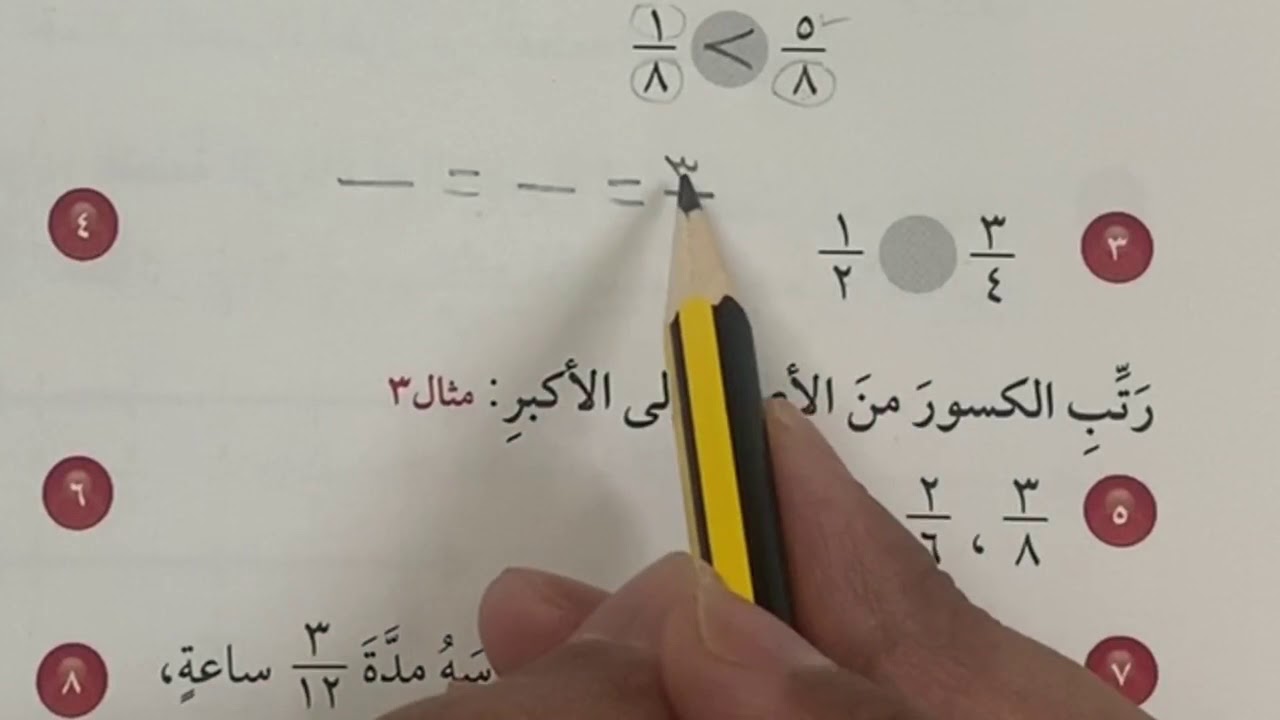 ٥/٨ > ١/٨
٣ = — = —
٣ ٣/٤ ١/٢ ٤
رَتِّبِ الكسورَ منَ الأكبرِ: مثال٣
٥ ٣/٨ ، ٢/٦ ٦
٧ مدَّةَ ٣/١٢ ساعةٍ، ٨